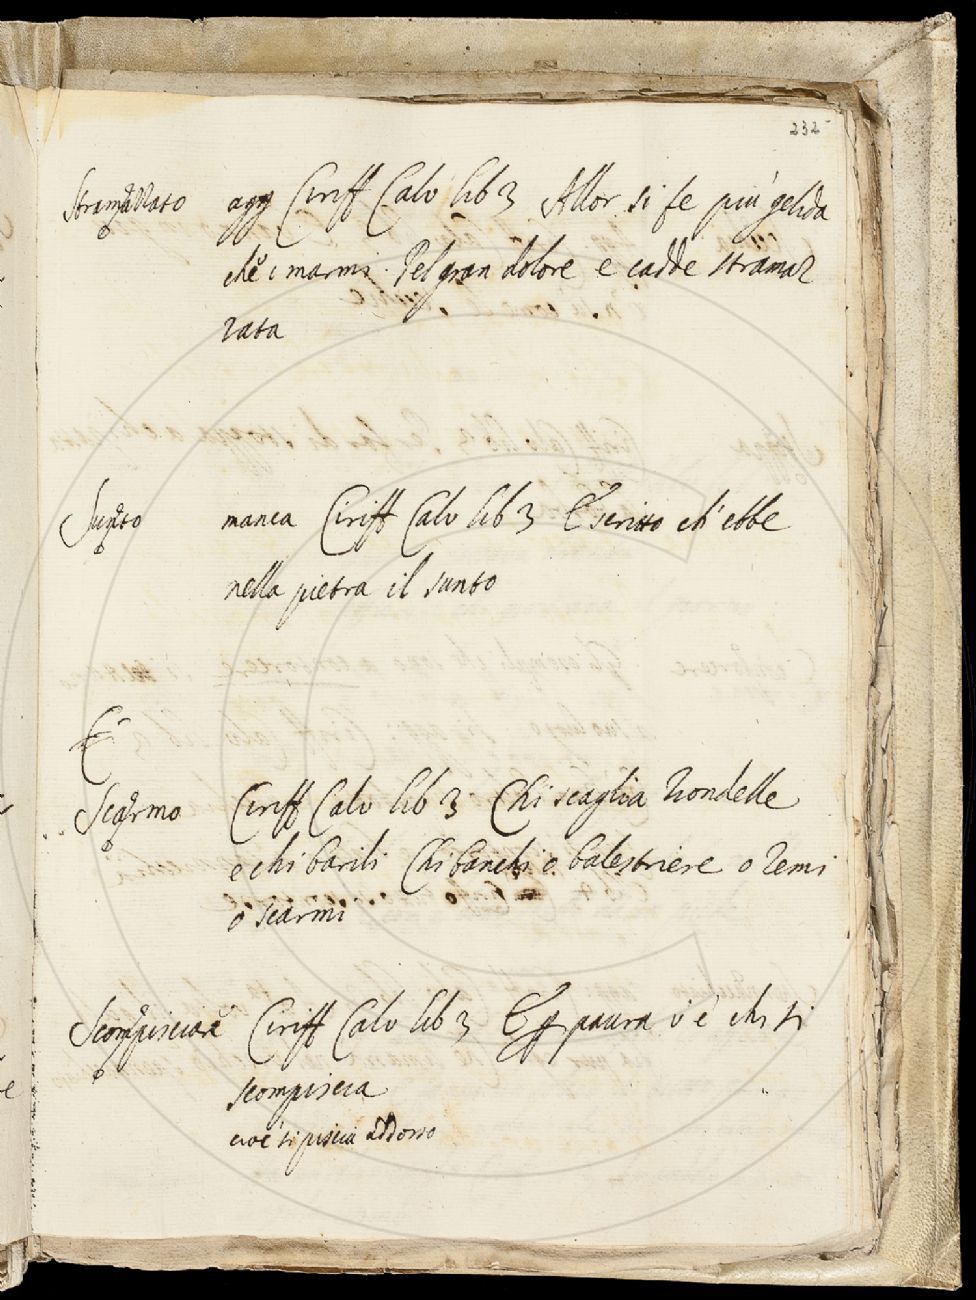 232
Stramazzato agg Ciriff Calv lib 3 Allor si fe più gelida
che i marmi. Pel gran dolore e cadde stramaz
zata
Sunto manca Ciriff Calv lib 3 E scritto ch'ebbe
nella pietra il sunto
Scarmo Ciriff Calv lib 3 Chi scaglia Rondelle
e chi barili Chi banchi o balestriere o remi
o scarmi
Scompisciare Ciriff Calv lib 3 E p paura v'è chi si
scompiscia
cioè si piscia addosso